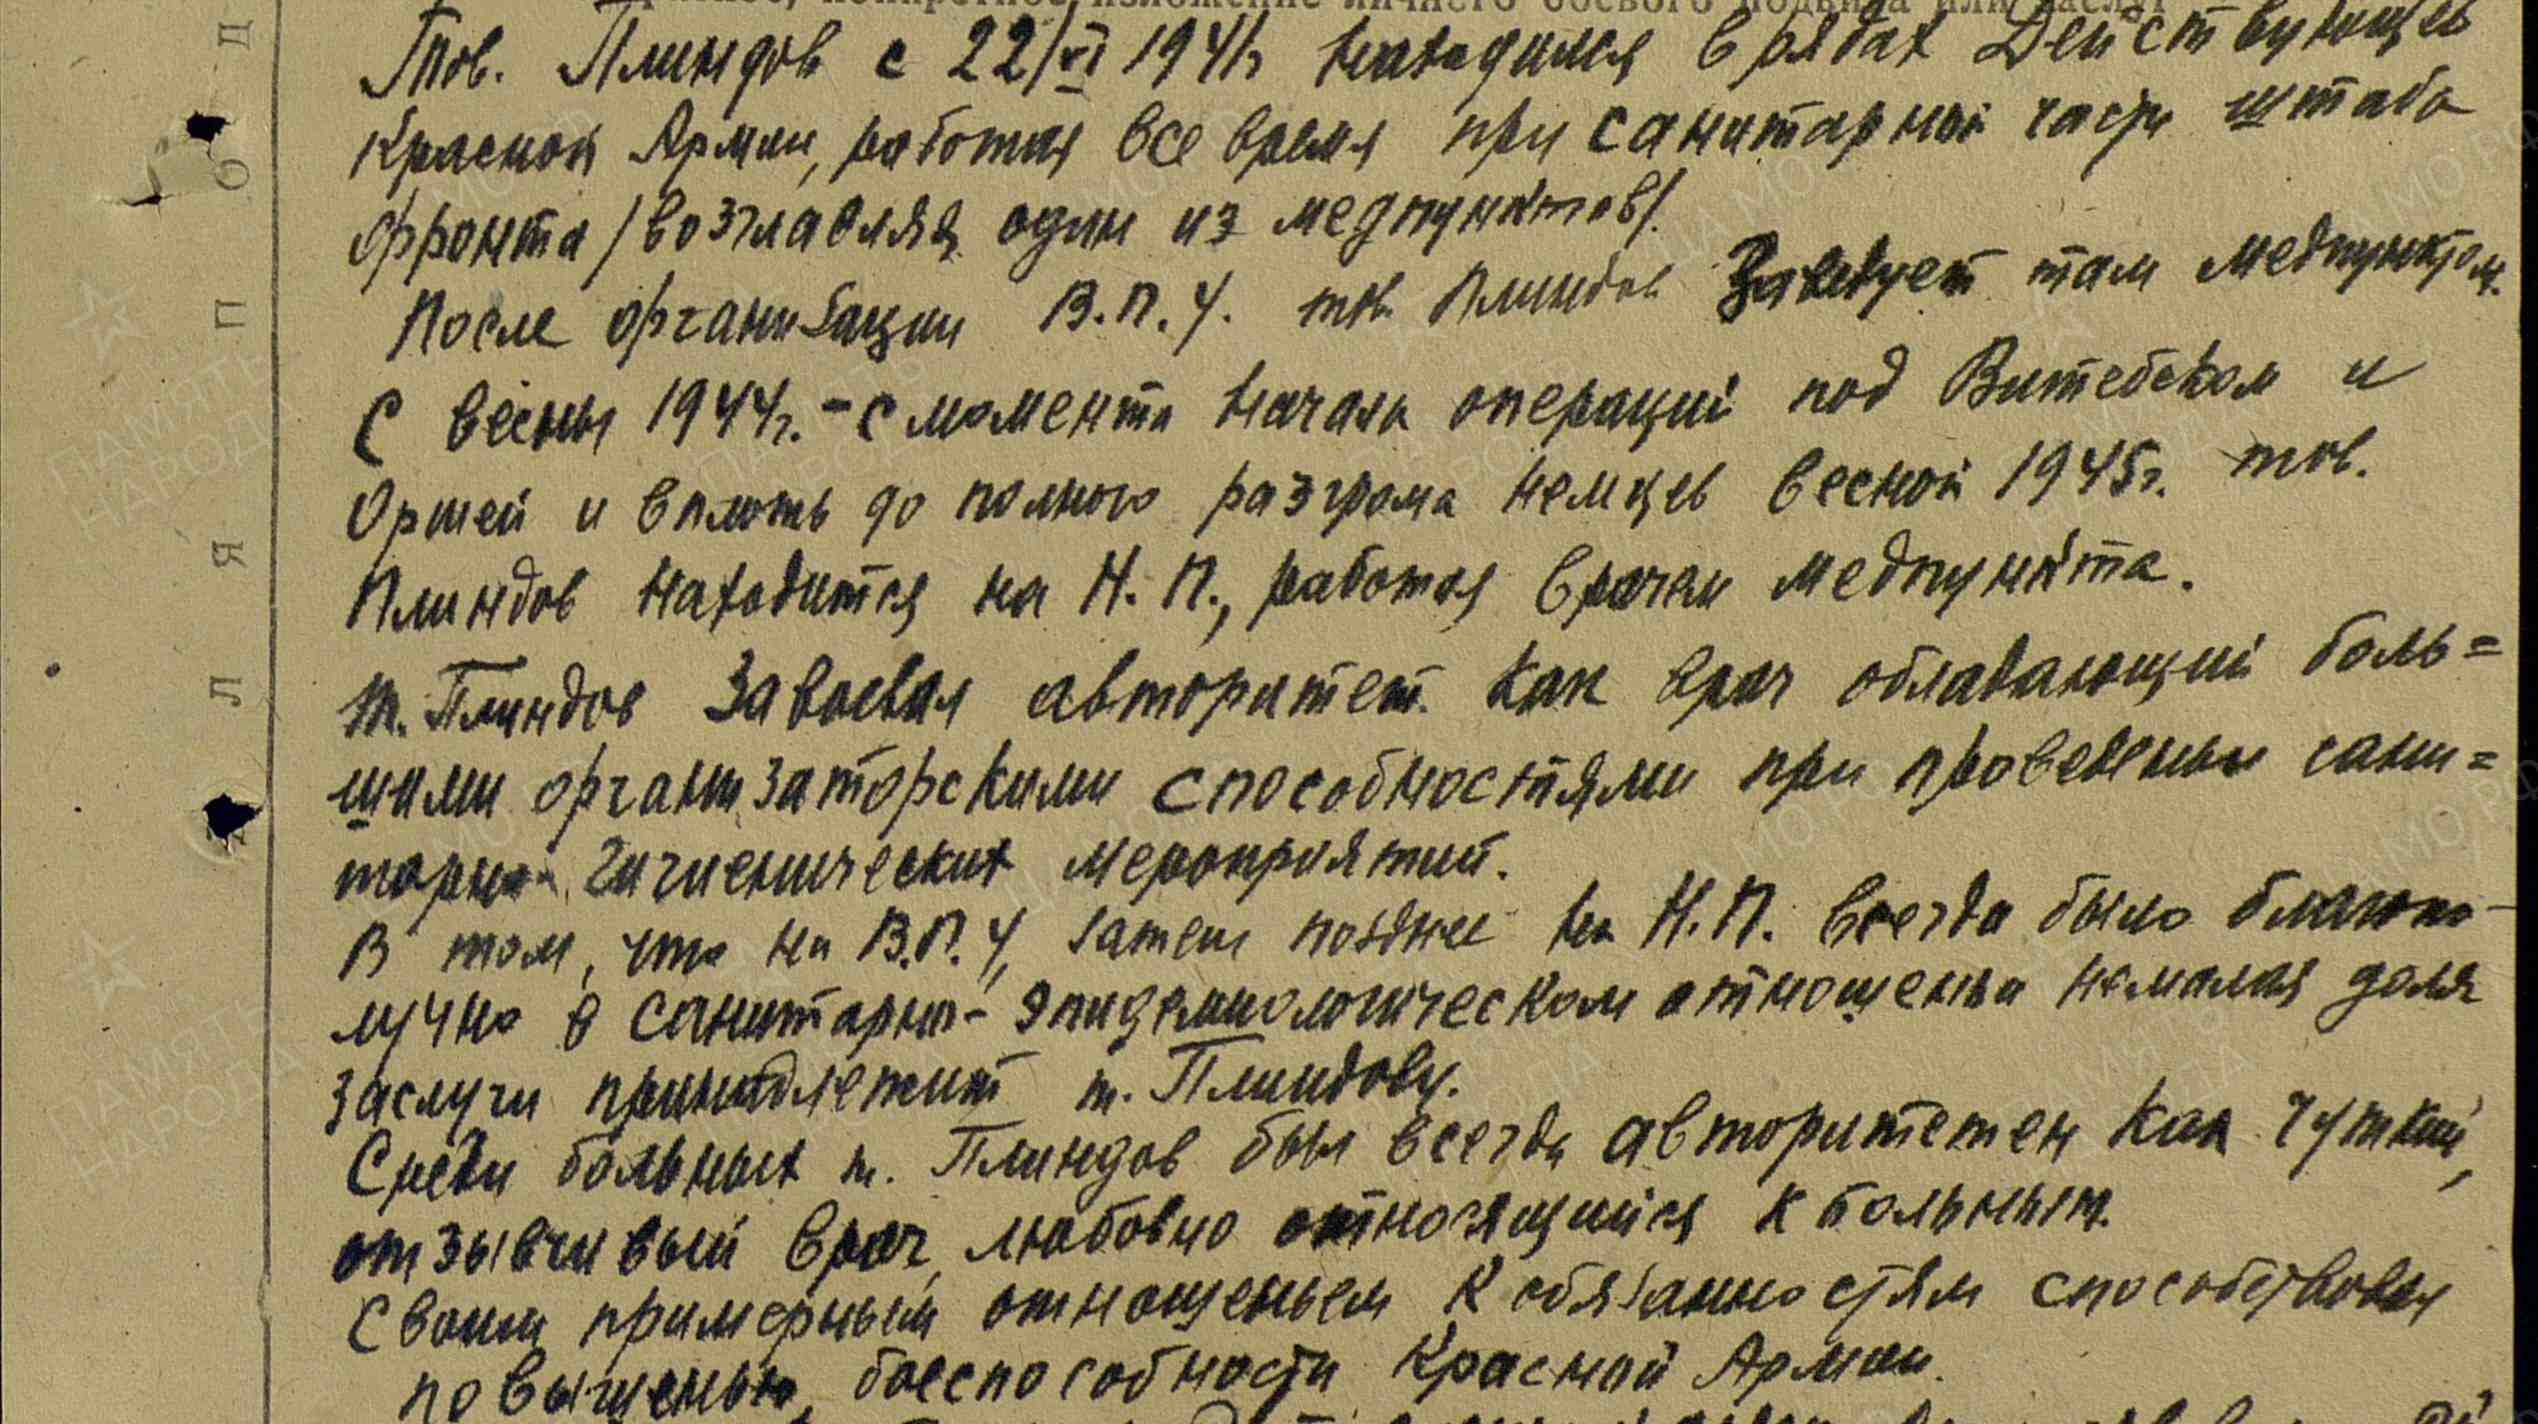 краткое, конкретное изложение личного боевого подвига или заслуг
Тов. Плиндов с 22/VI 1941г находился в рядах Действующей
Красной Армии, работая все время при санитарной части штаба
фронта /возглавляя один из медпунктов/.
После организации В.П.У. тов. Плиндов Заведует там медпунктом.
С весны 1944г. - с момента начала операций под Витебском и
Оршей и вплоть до полного разгрома немцев весной 1945г. тов.
Плиндов находится на Н.П., работая врачом медпункта.
т. Плиндов завоевал авторитет как врач обладающий боль=
шими организаторскими способностями при проведеньи сани=
тарно-гигиенических мероприятий.
В том, что на В.П.У, затем позднее на Н.П. всегда было благопо-
лучно в санитарно-эпидемиологическом отношеньи немалая доля
заслуги принадлежит т. Плиндову.
Среди больных т. Плиндов был всегда авторитетен как чуткий,
отзывчивый врач, любовно относящийся к больным.
Своим примерным отношеньем к обязанностям способствовал
повышенью боеспособности Красной Армии.
Д
О
П
Я
Л
ПАМЯТЬ
НАРОДА
ЦАМО.РФ